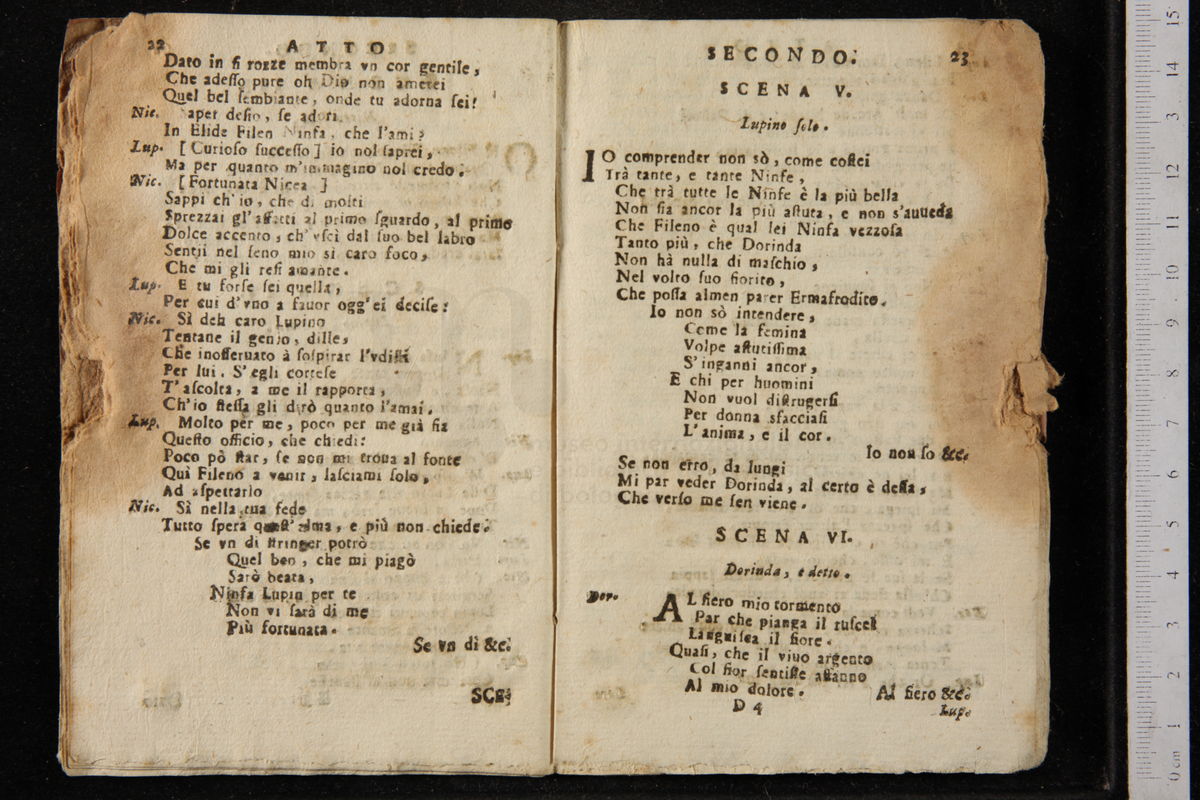 22 ATTO
Dato in ſi rozze membra vn cor gentile,
Che adeſſo pure oh Dio non amerei
Quel bel ſembiante, onde tu adorna ſei!
Nic. Saper deſio, ſe adori
In Elide Filen Ninfa, che l'ami?
Lup. [Curioſo ſucceſſo] io nol ſaprei,
Ma per quanto m'immagino nol credo.
Nic. [Fortunata Nicea]
Sappi ch'io, che di molti
Sprezzai gl'affetti al primo ſguardo, al primo
Dolce accento, ch'vſcì dal ſuo bel labro
Sentij nel ſeno mio sì caro foco,
Che mi gli reſi amante.
Lup. E tu forſe ſei quella,
Per cui d'vno a fauor ogg'ei deciſe?
Nic. Sì deh caro Lupino
Tentane il genio, dille,
Che inoſſeruato à ſoſpirar l'vdiſti
Per lui. S'egli corteſe
T'aſcolta, a me il rapporta,
Ch'io ſteſſa gli dirò quanto l'amai.
Lup. Molto per me, poco per me già fia
Queſto officio, che chiedi:
Poco pò ſtar, ſe non mi troua al fonte
Quì Fileno a venir, laſciami ſolo,
Ad aſpettarlo
Nic. Sì nella tua fede
Tutto ſpera queſt'alma, e più non chiede.
Se vn dì ſtringer potrò
Quel ben, che mi piagò
Sarò beata,
Ninfa Lupin per te
Non vi ſarà di me
Più fortunata.
Se vn dì &c.
SCE-
SECONDO. 23
SCENA V.
Lupino ſolo.
IO comprender non sò, come coſtei
Trà tante, e tante Ninfe,
Che trà tutte le Ninfe è la più bella
Non ſia ancor la più aſtuta, e non s'auueda
Che Fileno è qual lei Ninfa vezzoſa
Tanto più, che Dorinda
Non hà nulla di maſchio,
Nel volto ſuo fiorito,
Che poſſa almen parer Ermafrodito.
Io non sò intendere,
Come la femina
Volpe aſtutiſſima
S'inganni ancor,
E chi per huomini
Non vuol diſtrugerſi
Per donna sfacciaſi
L'anima, e il cor.
Io non ſo &c.
Se non erro, da lungi
Mi par veder Dorinda, al certo è deſſa,
Che verſo me ſen viene.
SCENA VI.
Dorinda, e detto.
Dor. AL fiero mio tormento
Par che pianga il ruſcel
Languiſca il fiore.
Quaſi, che il viuo argento
Col fior ſentiſſe affanno
Al mio dolore. Al fiero &c.
D 4
Lup.